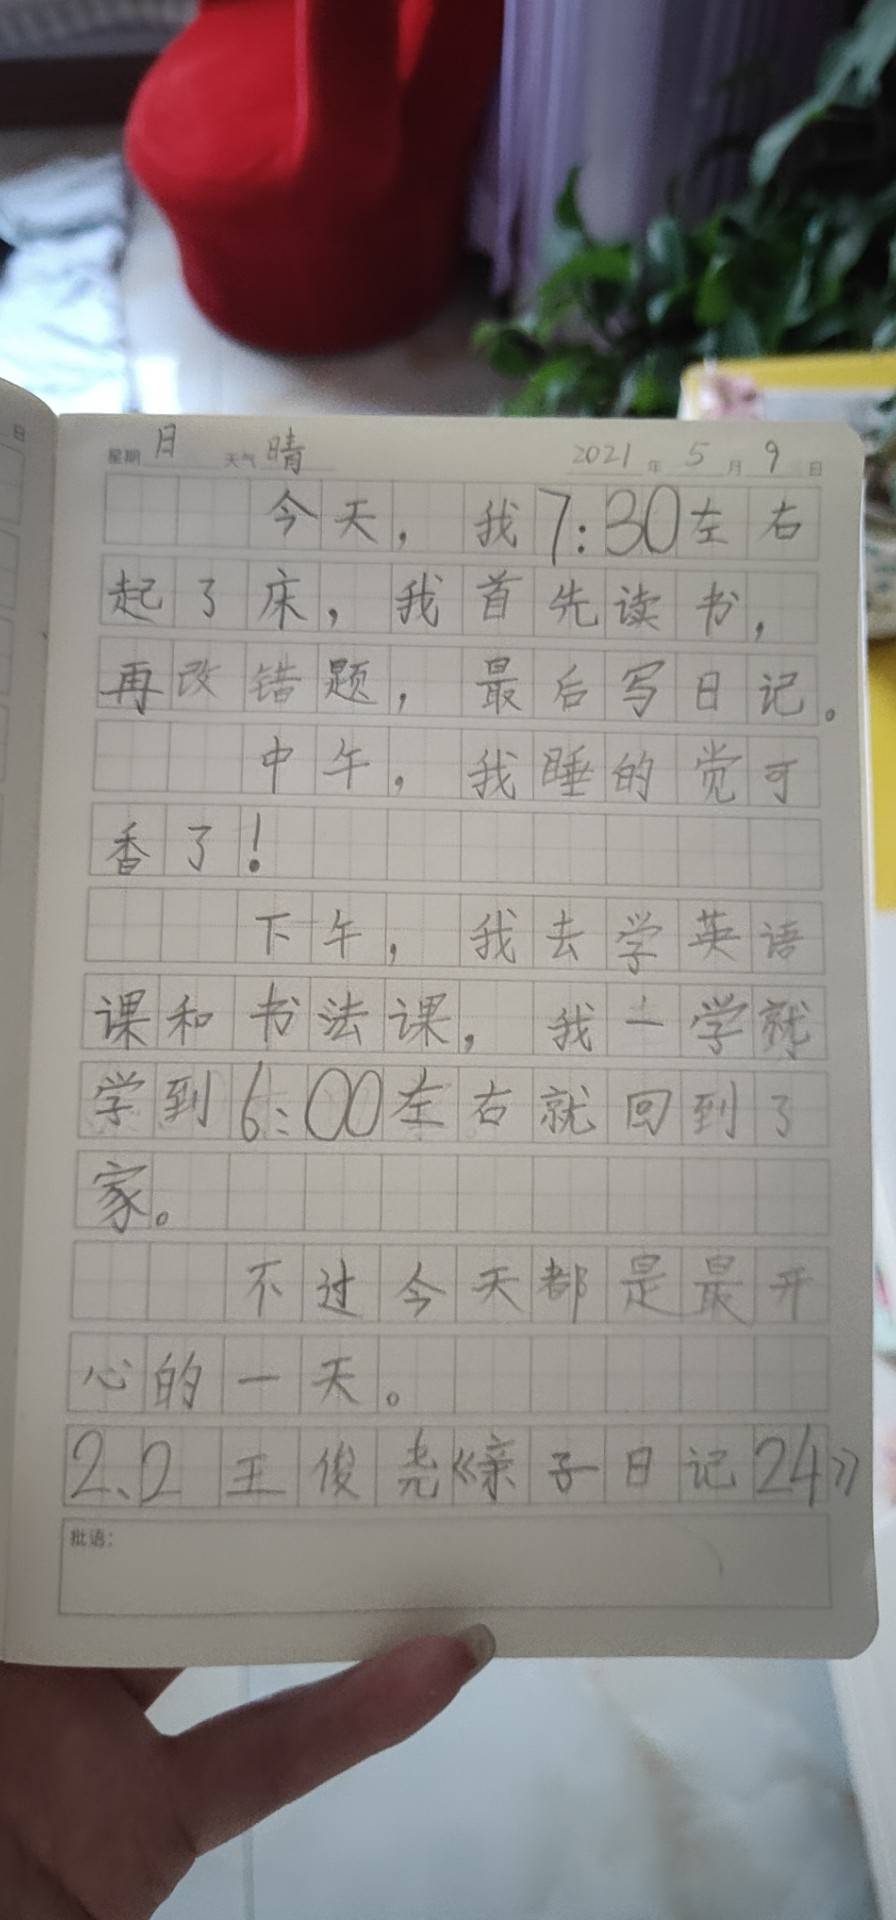 日
星期 月 天气 晴 2021 年 5 月 9 日
今天，我7:30左右
起了床，我首先读书，
再改错题，最后写日记。
中午，我睡的觉可
香了！
下午，我去学英语
课和书法课，我一学就
学到6:00左右就回到了
家。
不过今天都是最开
心的一天。
2.2王俊尧《亲子日记24》
批语：